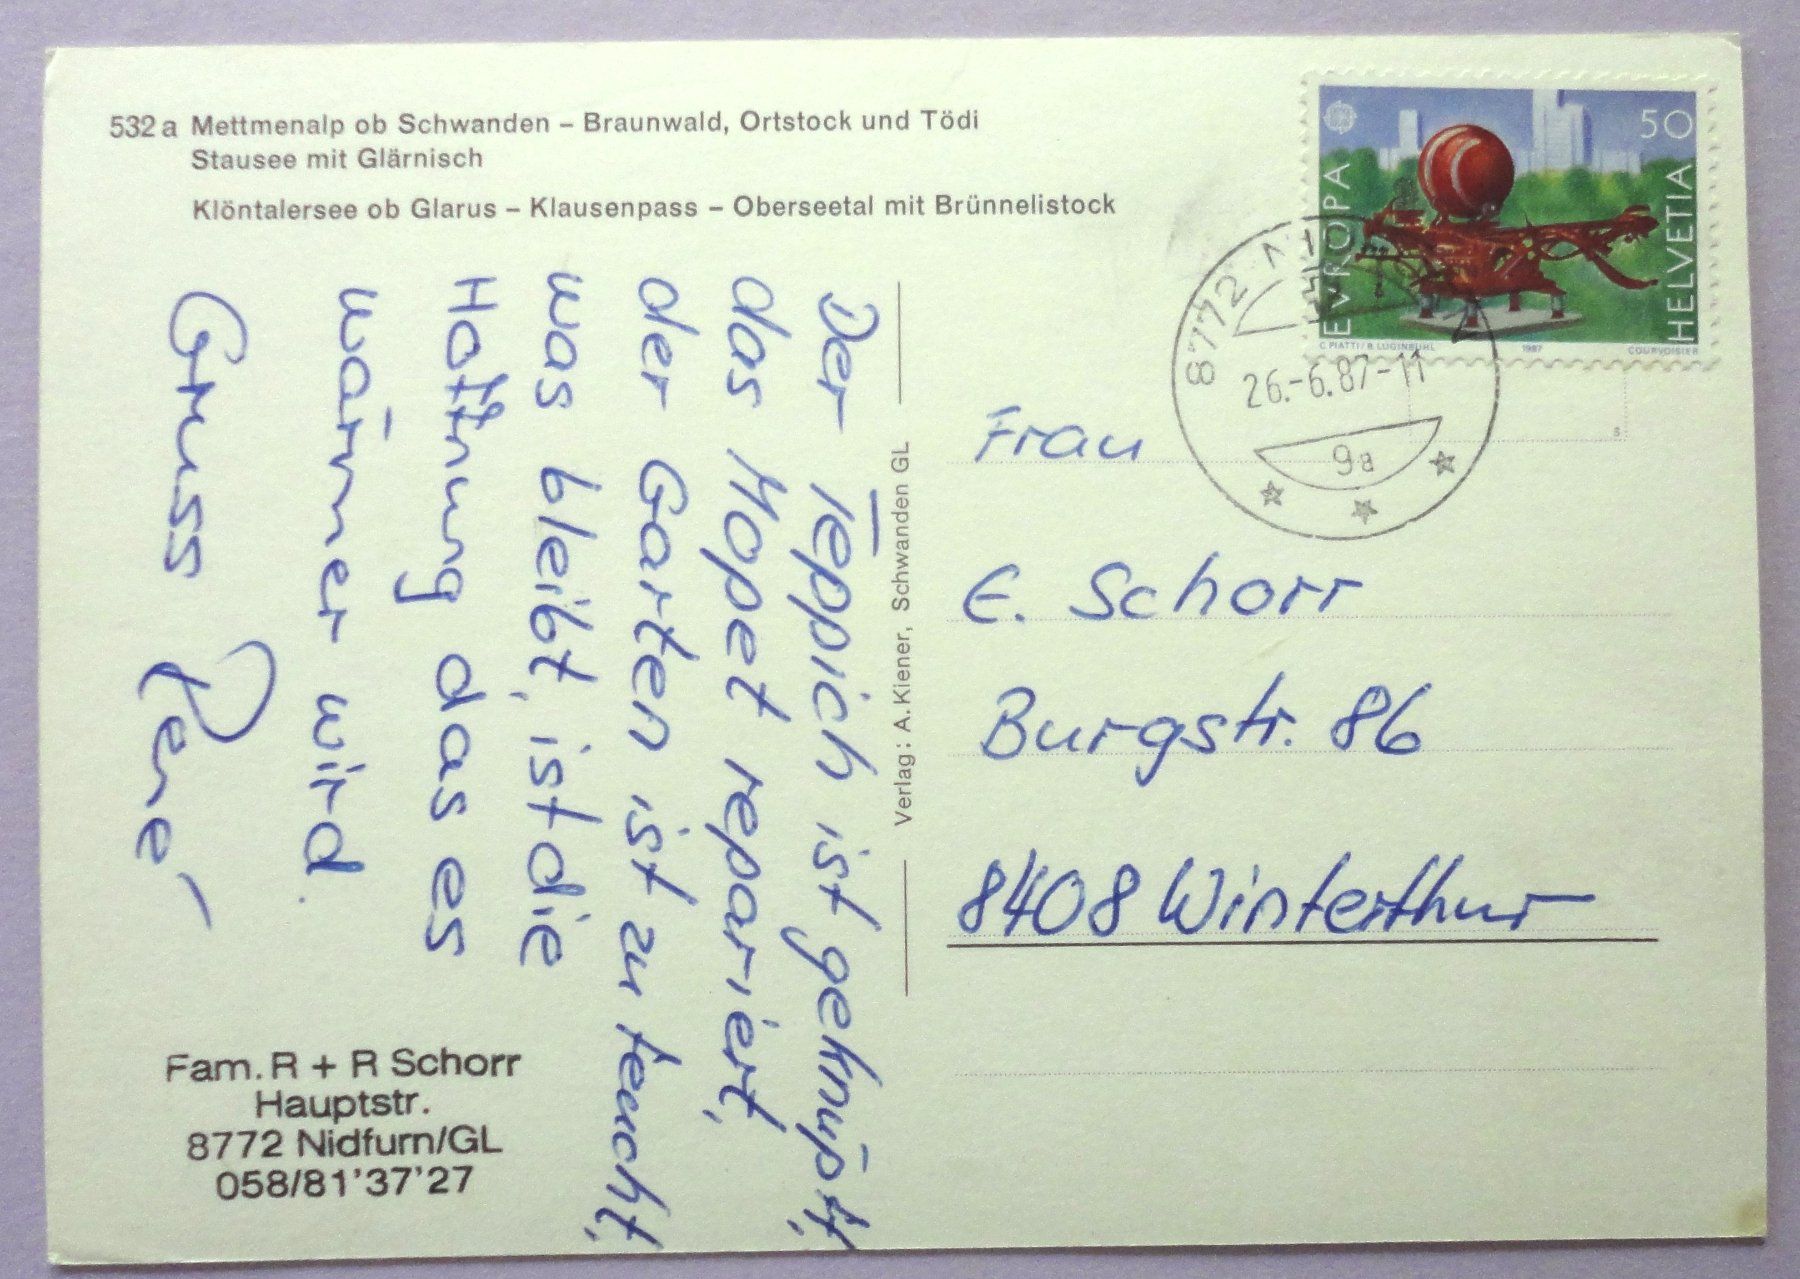 532 a Mettmenalp ob Schwanden – Braunwald, Ortstock und Tödi
Stausee mit Glärnisch
Klöntalersee ob Glarus – Klausenpass – Oberseetal mit Brünnelistock
Der Teppich ist geknüpft,
das Mopet repariert,
der Garten ist zu feucht,
was bleibt, ist die
Hoffnung das es
wärmer wird.
Gruss René
Fam. R + R Schorr
Hauptstr.
8772 Nidfurn/GL
058/81'37'27
Verlag: A. Kiener, Schwanden GL
EVROPA
50
HELVETIA
C. PIATTI / B. LUGINBÜHL
1987
COURVOISIER
8772
26.-6.87-11
9a
s
Frau
E. Schorr
Burgstr. 86
8408 Winterthur